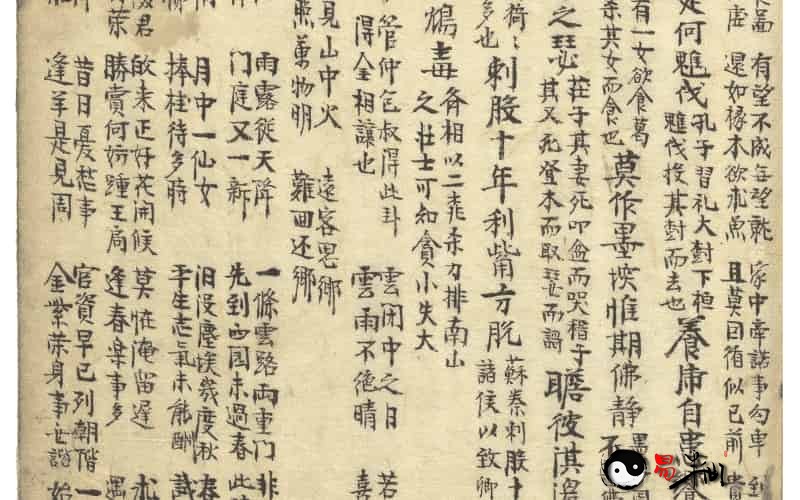 有望不成望乾 家中牽諾事勾牽 到
虛 還如稼本欲求魚 且莫因循似已前 賞
是何魋伐 孔子習礼大封下桓
魋伐投其封而去也 養庸自
有一女欲食葛
杀其女而食也 莫作墨埃惟期佛静 不
之瑟 莊子其妻死叩盆而哭稽子
其又死登本而取瑟而謌 瞻彼淇
多也 刺股十年利觜方脫 蘇秦刺股十
諸侯以致卿
鴆毒 各相以二桃杀力排南山
之壮士可知貪小失大
管仲包叔得此卦 雲閉中之日 若
得全相讓也 雲雨不絶晴 喜
見山中火 遠客思鄉
照萬物明 難回还鄉
雨露從天降 一條雲路兩重門 非
門庭又一新 先到西園未過春 此
月中一仙女 汨没塵埃幾度秋 春
捧桂待多時 平生志氣未能酬 試
君 未正好花開候 莫恠淹留遲 求
勝賞何妨踵王局 逢春樂事多 遇
昔日憂愁事 官資早已列朝階 一
逢羊是見周 金紫荣身事世諧 始
易